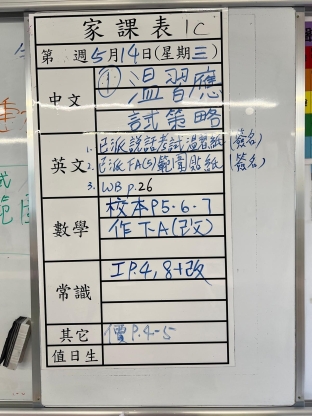 家課表 1C
第 週 5月14日(星期三)
中文 ① 溫習應
試策略
英文 1. 已派說話考試溫習紙(簽名)
2. 已派FA(5)範圍貼紙(簽名)
3. WB p.26
數學 校本P5.6.7
作下A(改)
常識 工P.4,8+改
其它 價P.4-5
值日生